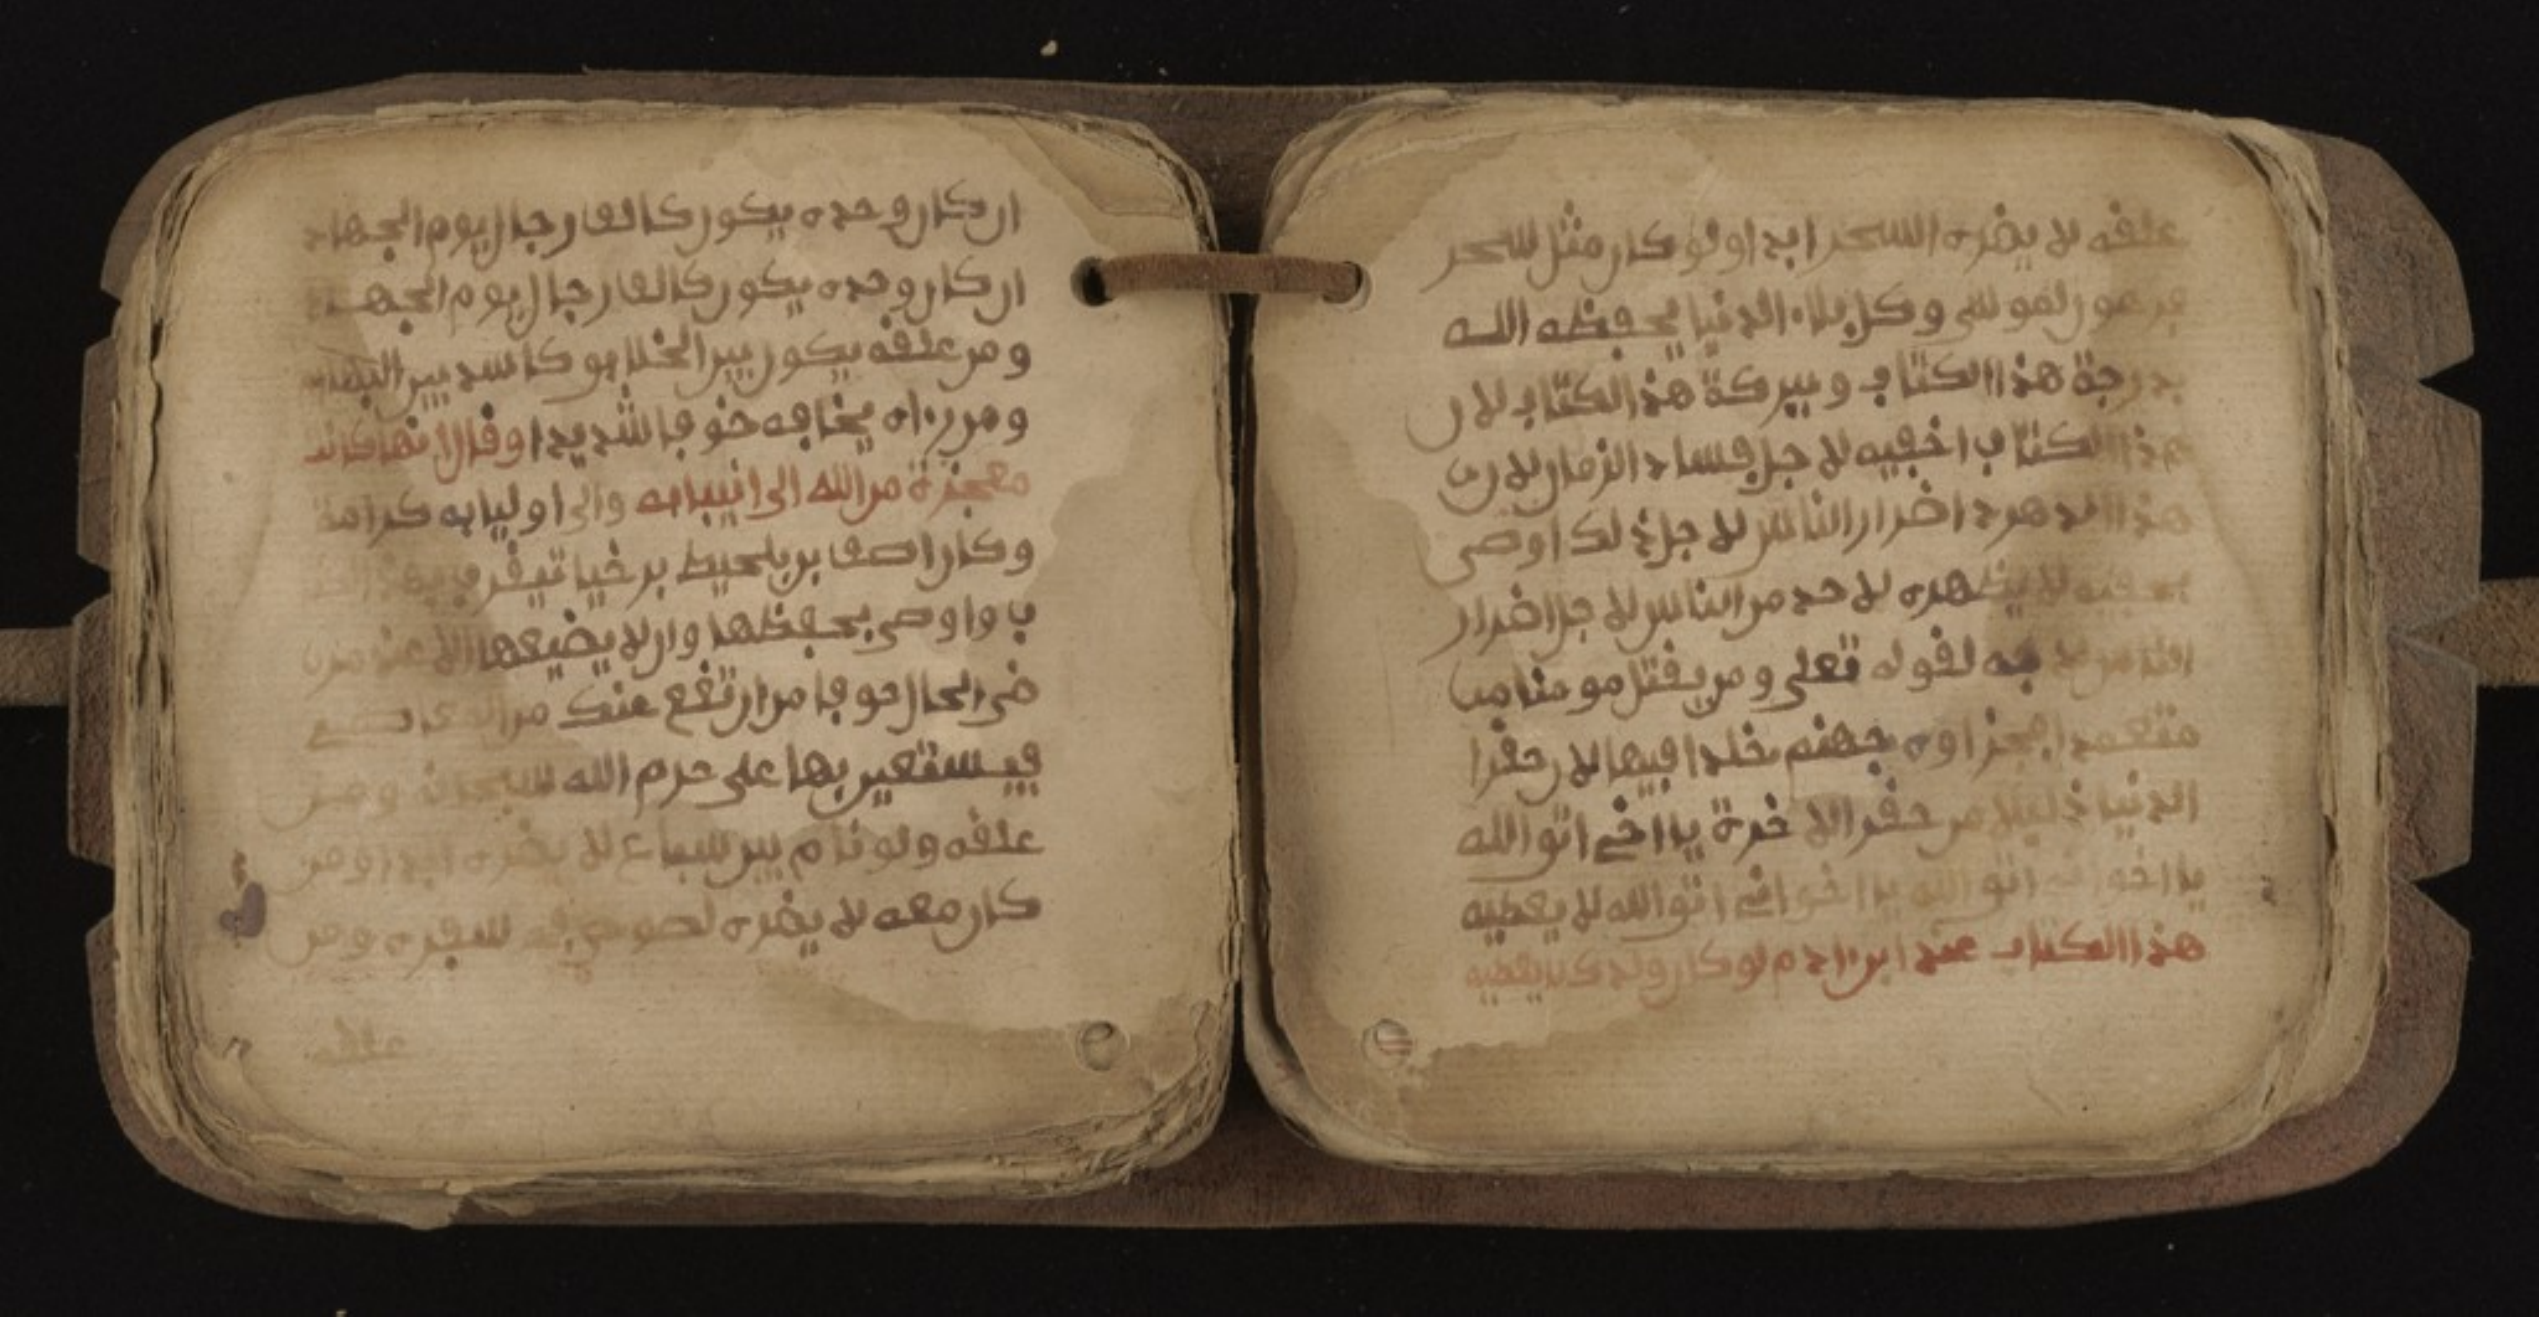 ان كان وحده يكون كالف رجال يوم الجهاد
ان كان وحده يكون كالف رجال يوم الجهد
ومن علقه يكون بين الخلايو كاسد بين البهايم
ومن رءاه يخافه خوفا شديدا وقال انها كانت
معجزة من الله الى انبيايه والى اوليايه كرامة
وكان اصف بن بلحيط برخيا تيقرب بهذا الكتا
ب واوصى بحفظها وان لا يضيعها الا عند من
ضى الحال خوفا من ان تقع عندك من
فيستعين بها على حرم الله سبحانه ومن
علقه ولو نام بين سباع لا يضره ابدا ومن
كان معه لا يضره لصوص في سفره ومن
علقه
علقه لا يضره السحر ابدا ولو كان مثل سحر
فرعون لموسى وكل بلاء الدنيا يحفظه الله
بدرجة هذا الكتاب وببركة هذا الكتاب لان
هذا الكتاب اخفيه لاجل فساد الزمان لان
هذا الدهر د اضرار الناس لاجل ذلك اوصى
يخفيه لا يظهره لاحد من الناس لاجل اضرار
الناس به لقوله تعلى ومن يقتل مومنا مت
متعمدا فجزاوه جهنم خلدا فيها لان حقرا
الدنيا ذليلا من حقر الاخرة يا اخي اتو الله
يا اخواني اتو الله يا اخواني اتو الله لا يعطيه
هذا الكتاب عند ابن ءادم لو كان ولدك لا يعطيه